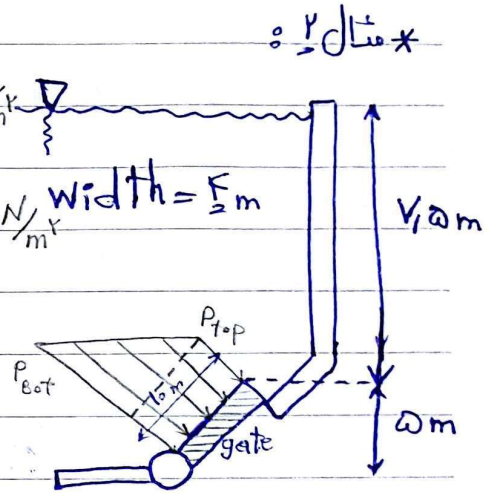 * مثال ۲ :
N/m۲ width = ۴ m
۷,۵ m
P top
P Bot
۱۰ m
gate
۵ m